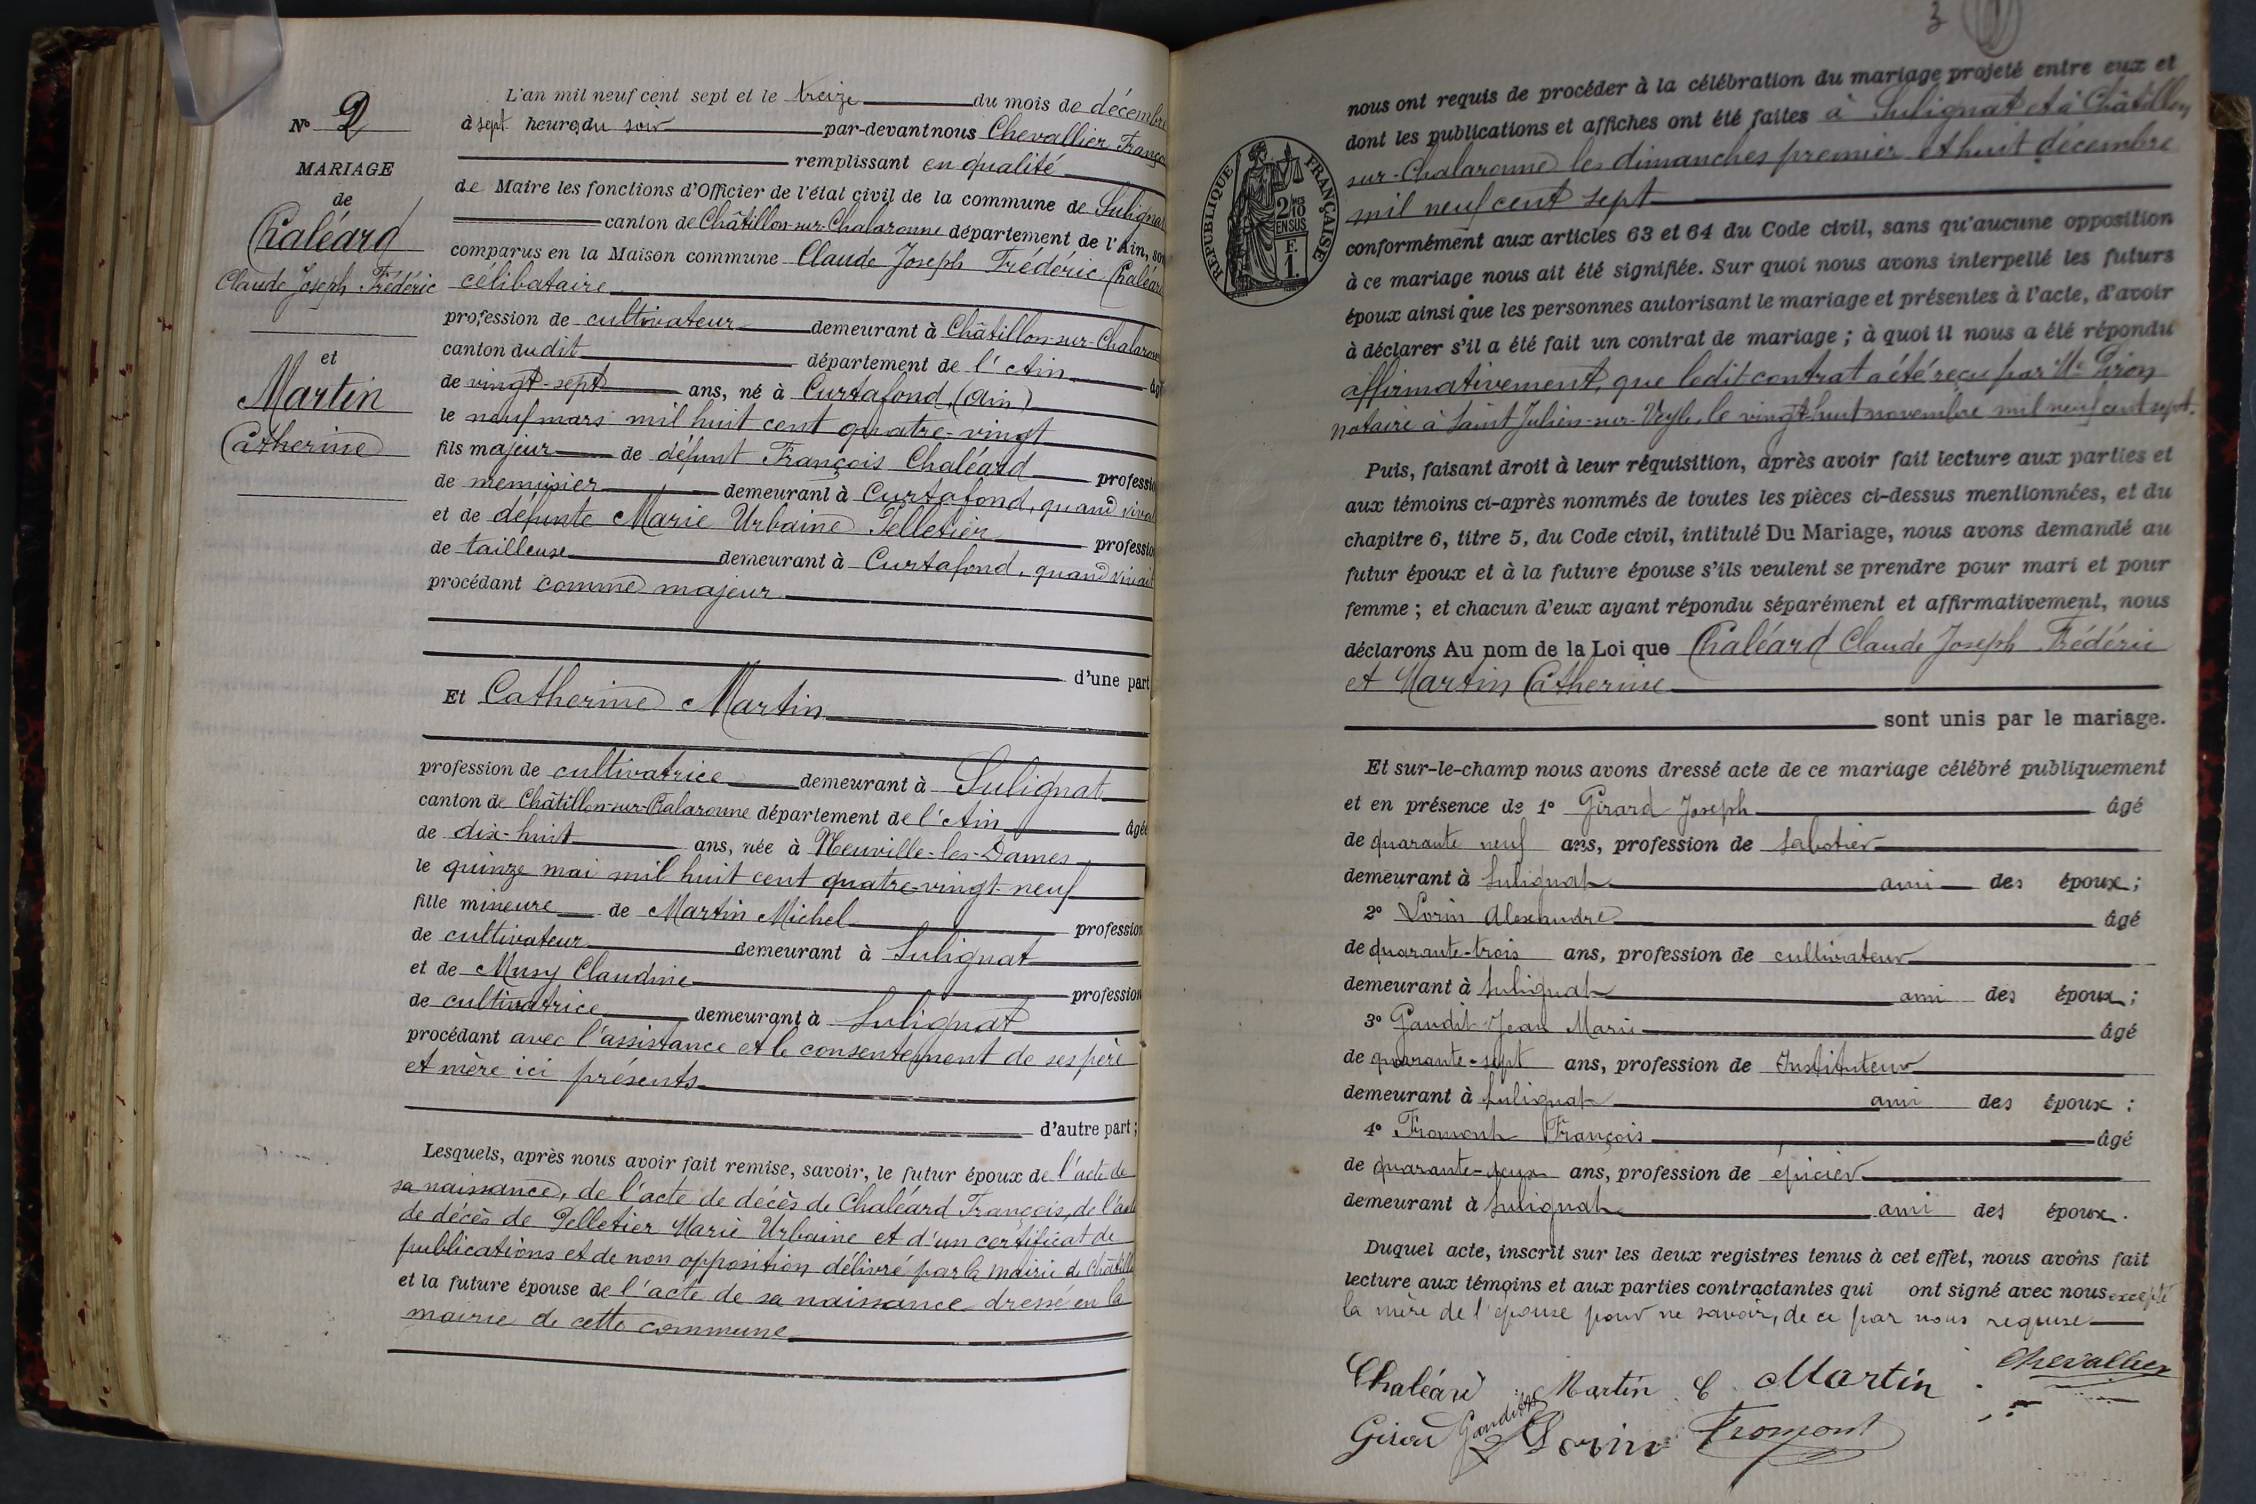 Nº 2
MARIAGE
de
Chaléard
Claude Joseph Frédéric
et
Martin
Catherine
L'an mil neuf cent sept et le treize du mois de décembre
à sept heures du soir par-devant nous Chevallier Franço
remplissant en qualité
de Maire les fonctions d'Officier de l'état civil de la commune de Sulignat
canton de Châtillon-sur-Chalaronne département de l'Ain, so
comparus en la Maison commune Claude Joseph Frédéric Chaléard
célibataire
profession de cultivateur demeurant à Châtillon-sur-Chalaron
canton dudit département de l'Ain âgé
de vingt-sept ans, né à Curtafond (Ain)
le neuf mars mil huit cent quatre-vingt
fils majeur de défunt François Chaléard professio
de menuisier demeurant à Curtafond, quand viva
et de défunte Marie Urbaine Pelletier professio
de tailleuse demeurant à Curtafond, quand vivait
procédant comme majeur
d'une part
Et Catherine Martin
profession de cultivatrice demeurant à Sulignat
canton de Châtillon-sur-Chalaronne département de l'Ain âgée
de dix-huit ans, née à Neuville-les-Dames
le quinze mai mil huit cent quatre-vingt-neuf
fille mineure de Martin Michel profession
de cultivateur demeurant à Sulignat
et de Musy Claudine profession
de cultivatrice demeurant à Sulignat
procédant avec l'assistance et le consentement de ses père
et mère ici présents
d'autre part ;
Lesquels, après nous avoir fait remise, savoir, le futur époux de l'acte de
sa naissance, de l'acte de décès de Chaléard François, de l'acte
de décès de Pelletier Marie Urbaine et d'un certificat de
publications et de non opposition délivré par la mairie de Châtillo
et la future épouse de l'acte de sa naissance dressé en la
mairie de cette commune
3
nous ont requis de procéder à la célébration du mariage projeté entre eux et
dont les publications et affiches ont été faites à Sulignat et à Châtillon
sur-Chalaronne les dimanches premier et huit décembre
mil neuf cent sept
RÉPUBLIQUE FRANÇAISE
2/10
EN SUS
F.
1.
conformément aux articles 63 et 64 du Code civil, sans qu'aucune opposition
à ce mariage nous ait été signifiée. Sur quoi nous avons interpellé les futurs
époux ainsi que les personnes autorisant le mariage et présentes à l'acte, d'avoir
à déclarer s'il a été fait un contrat de mariage ; à quoi il nous a été répondu
affirmativement, que ledit contrat a été reçu par Me Piron
notaire à Saint Julien-sur-Veyle, le vingt-huit novembre mil neuf cent sept.
Puis, faisant droit à leur réquisition, après avoir fait lecture aux parties et
aux témoins ci-après nommés de toutes les pièces ci-dessus mentionnées, et du
chapitre 6, titre 5, du Code civil, intitulé Du Mariage, nous avons demandé au
futur époux et à la future épouse s'ils veulent se prendre pour mari et pour
femme ; et chacun d'eux ayant répondu séparément et affirmativement, nous
déclarons Au nom de la Loi que Chaléard Claude Joseph Frédéric
et Martin Catherine
sont unis par le mariage.
Et sur-le-champ nous avons dressé acte de ce mariage célébré publiquement
et en présence de 1º Girard Joseph âgé
de quarante neuf ans, profession de sabotier
demeurant à Sulignat ami des époux ;
2º Lorin Alexandre âgé
de quarante-trois ans, profession de cultivateur
demeurant à Sulignat ami des époux ;
3º Gaudit Jean Marie âgé
de quarante-sept ans, profession de Instituteur
demeurant à Sulignat ami des époux ;
4º Fromont François âgé
de quarante-deux ans, profession de épicier
demeurant à Sulignat ami des époux.
Duquel acte, inscrit sur les deux registres tenus à cet effet, nous avons fait
lecture aux témoins et aux parties contractantes qui ont signé avec nous excepté
la mère de l'épouse pour ne savoir, de ce par nous requise
Chaléard Martin C Martin Chevallier
Girard Gaudit Lorin Fromont